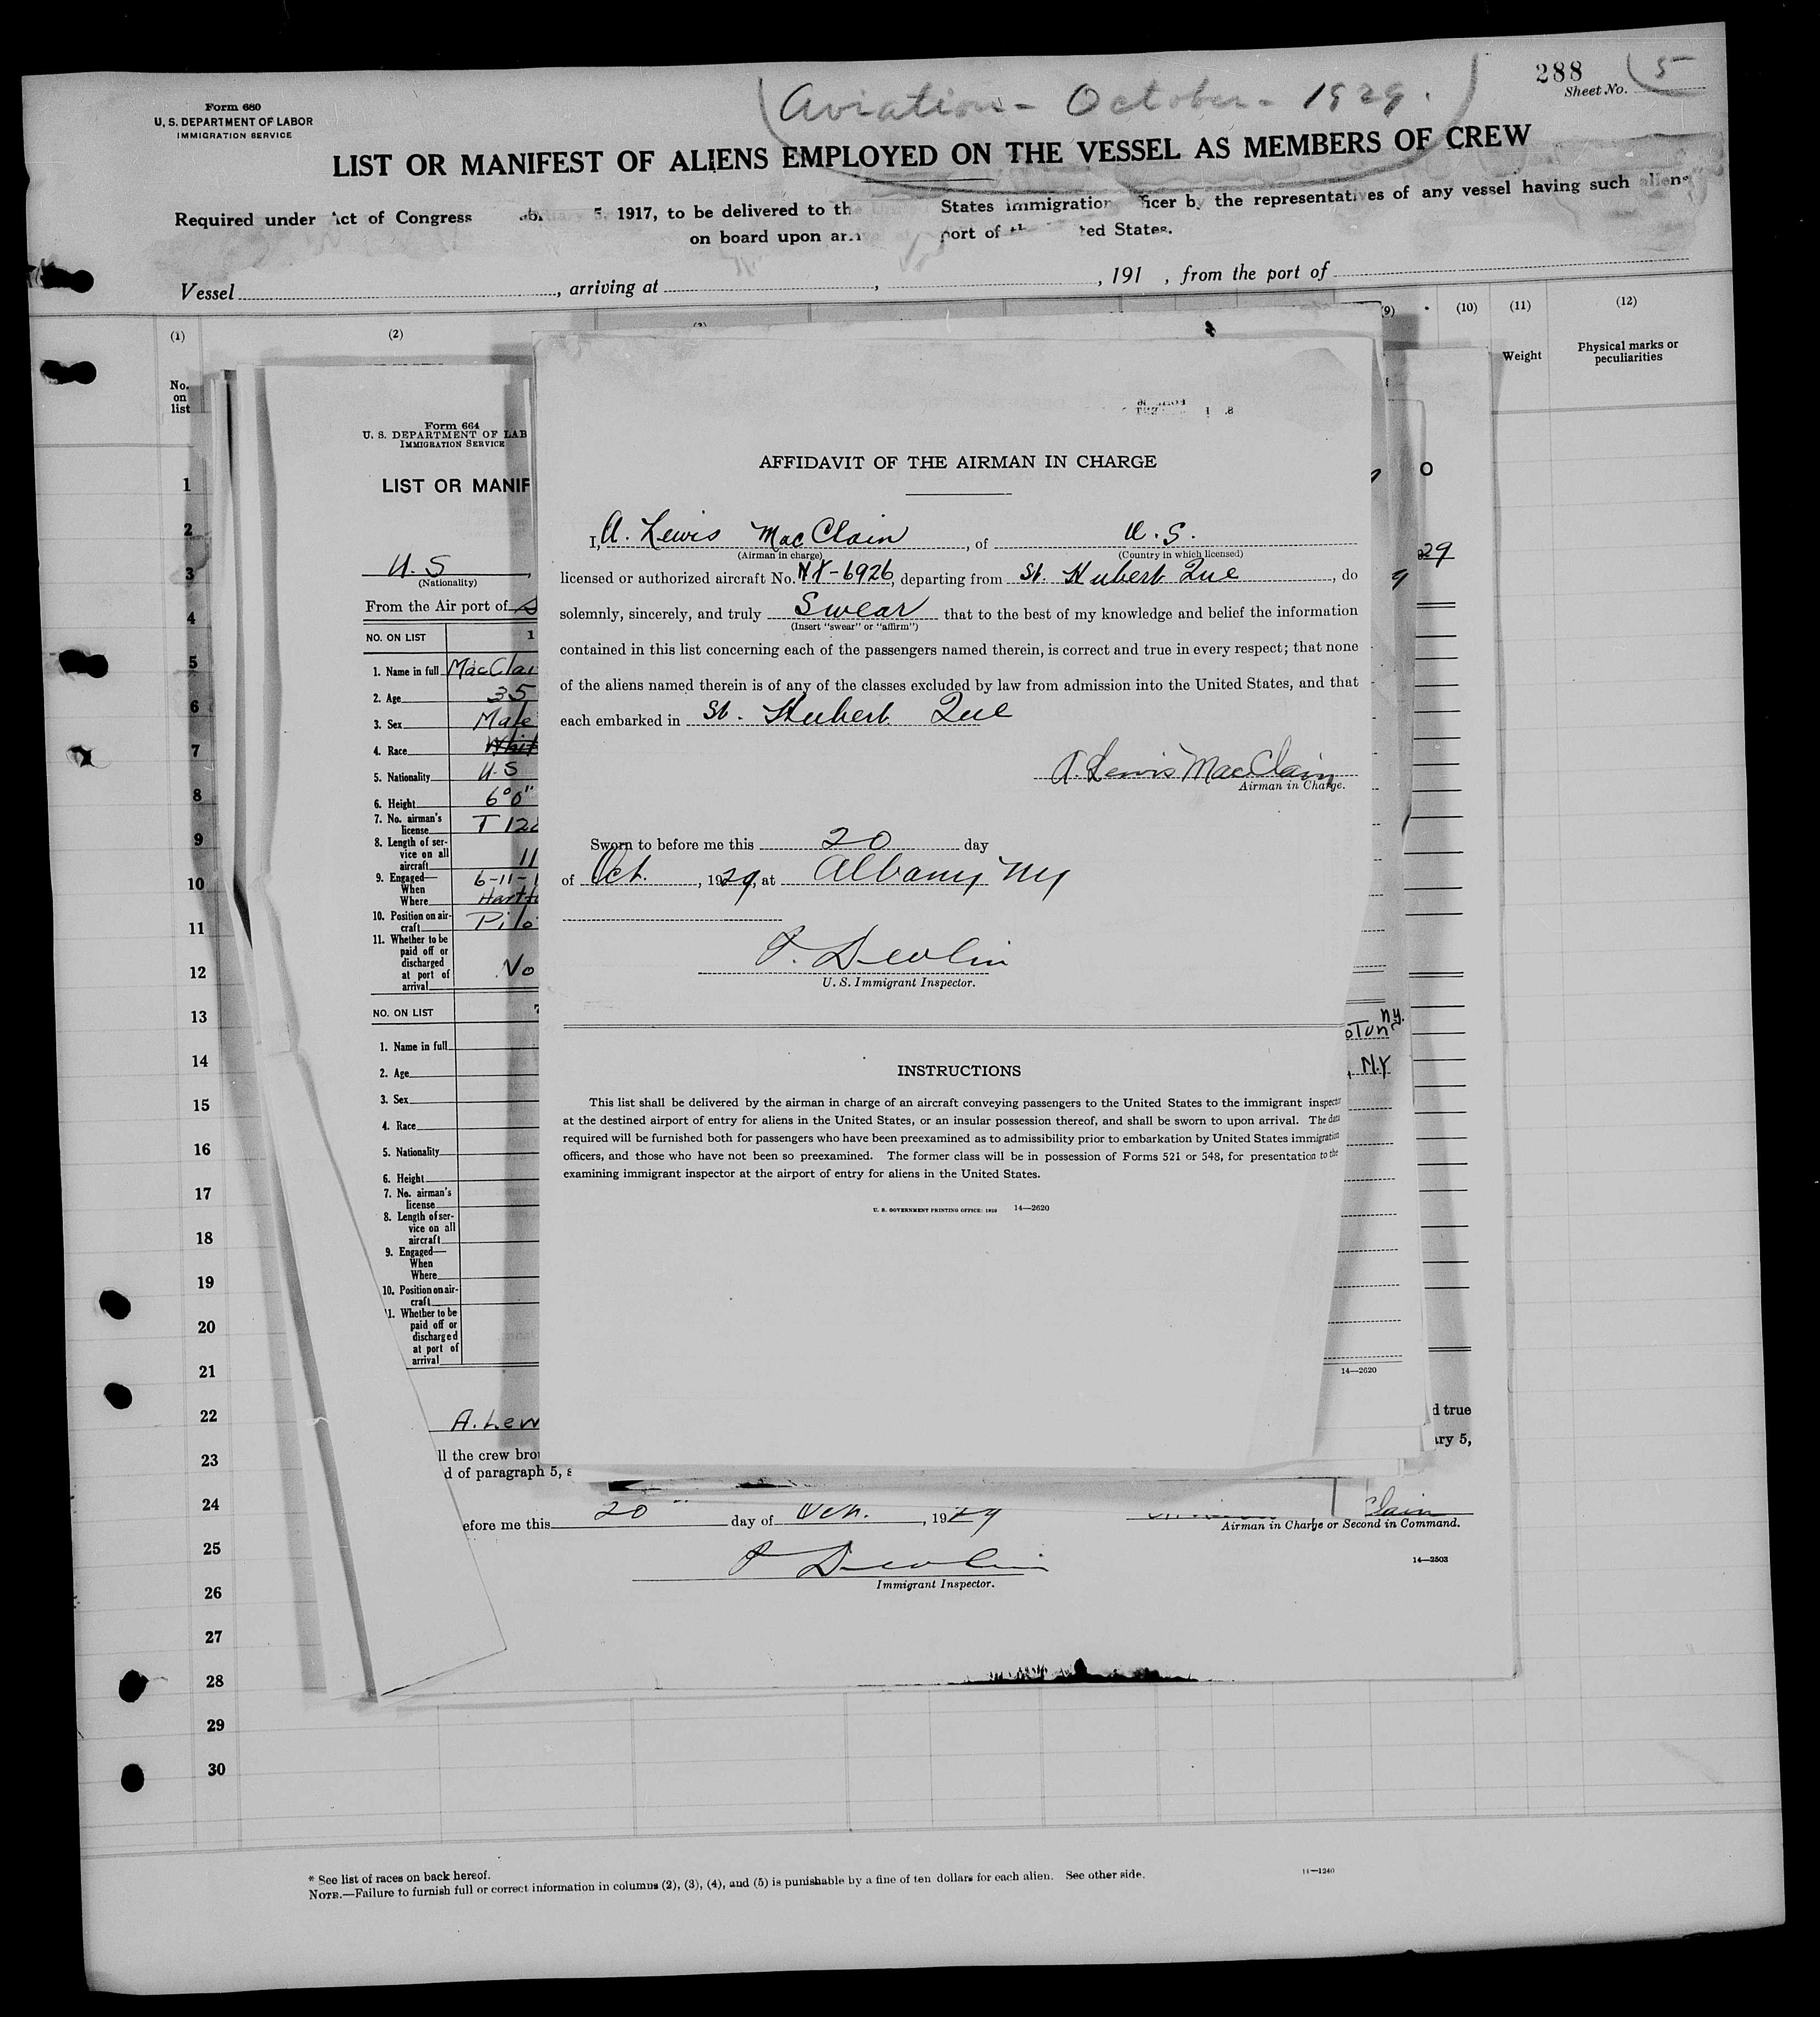 Aviation - October - 1929.
288
Sheet No. 5
Form 680
U. S. DEPARTMENT OF LABOR
IMMIGRATION SERVICE
LIST OR MANIFEST OF ALIENS EMPLOYED ON THE VESSEL AS MEMBERS OF CREW
Required under Act of Congress 5, 1917, to be delivered to the States immigration officer by the representatives of any vessel having such aliens
on board upon port of States.
Vessel , arriving at , , 191 , from the port of
(1) (2) (3) (9) (10) (11) (12)
No. on list
Weight
Physical marks or peculiarities
1
2
3
4
5
6
7
8
9
10
11
12
13
14
15
16
17
18
19
20
21
22
23
24
25
26
27
28
29
30
Form 664
U. S. DEPARTMENT OF LAB
IMMIGRATION SERVICE
LIST OR MANIF
U.S
(Nationality)
From the Air port of
NO. ON LIST 1
1. Name in full MacClai
2. Age 35
3. Sex Male
4. Race Whit
5. Nationality U.S
6. Height 6°0"
7. No. airman's license T 12
8. Length of service on all aircraft 11
9. Engaged— When 6-11-
Where Hartf
10. Position on aircraft Pilo
11. Whether to be paid off or discharged at port of arrival No
NO. ON LIST
1. Name in full
2. Age
3. Sex
4. Race
5. Nationality
6. Height
7. No. airman's license
8. Length of service on all aircraft
9. Engaged— When
Where
10. Position on aircraft
11. Whether to be paid off or discharged at port of arrival
A. Lew
ll the crew bro
d of paragraph 5, s
AFFIDAVIT OF THE AIRMAN IN CHARGE
I, A. Lewis MacClain , of U. S.
(Airman in charge) (Country in which licensed)
licensed or authorized aircraft No. NX-6926, departing from St. Hubert Que , do
solemnly, sincerely, and truly Swear that to the best of my knowledge and belief the information
(Insert "swear" or "affirm")
contained in this list concerning each of the passengers named therein, is correct and true in every respect; that none
of the aliens named therein is of any of the classes excluded by law from admission into the United States, and that
each embarked in St. Hubert Que
A. Lewis MacClain
Airman in Charge.
Sworn to before me this 20 day
of Oct. , 1929, at Albany NY
P. Devlin
U. S. Immigrant Inspector.
INSTRUCTIONS
This list shall be delivered by the airman in charge of an aircraft conveying passengers to the United States to the immigrant inspector
at the destined airport of entry for aliens in the United States, or an insular possession thereof, and shall be sworn to upon arrival. The data
required will be furnished both for passengers who have been preexamined as to admissibility prior to embarkation by United States immigration
officers, and those who have not been so preexamined. The former class will be in possession of Forms 521 or 548, for presentation to the
examining immigrant inspector at the airport of entry for aliens in the United States.
U. S. GOVERNMENT PRINTING OFFICE: 1929 14—2620
29
ny.
, N.Y
14—2620
d true
ary 5,
efore me this 20 day of Oct. , 1929
Clain
Airman in Charge or Second in Command.
P Devlin
Immigrant Inspector.
14—2503
* See list of races on back hereof.
NOTE.—Failure to furnish full or correct information in columns (2), (3), (4), and (5) is punishable by a fine of ten dollars for each alien. See other side.
14—1240